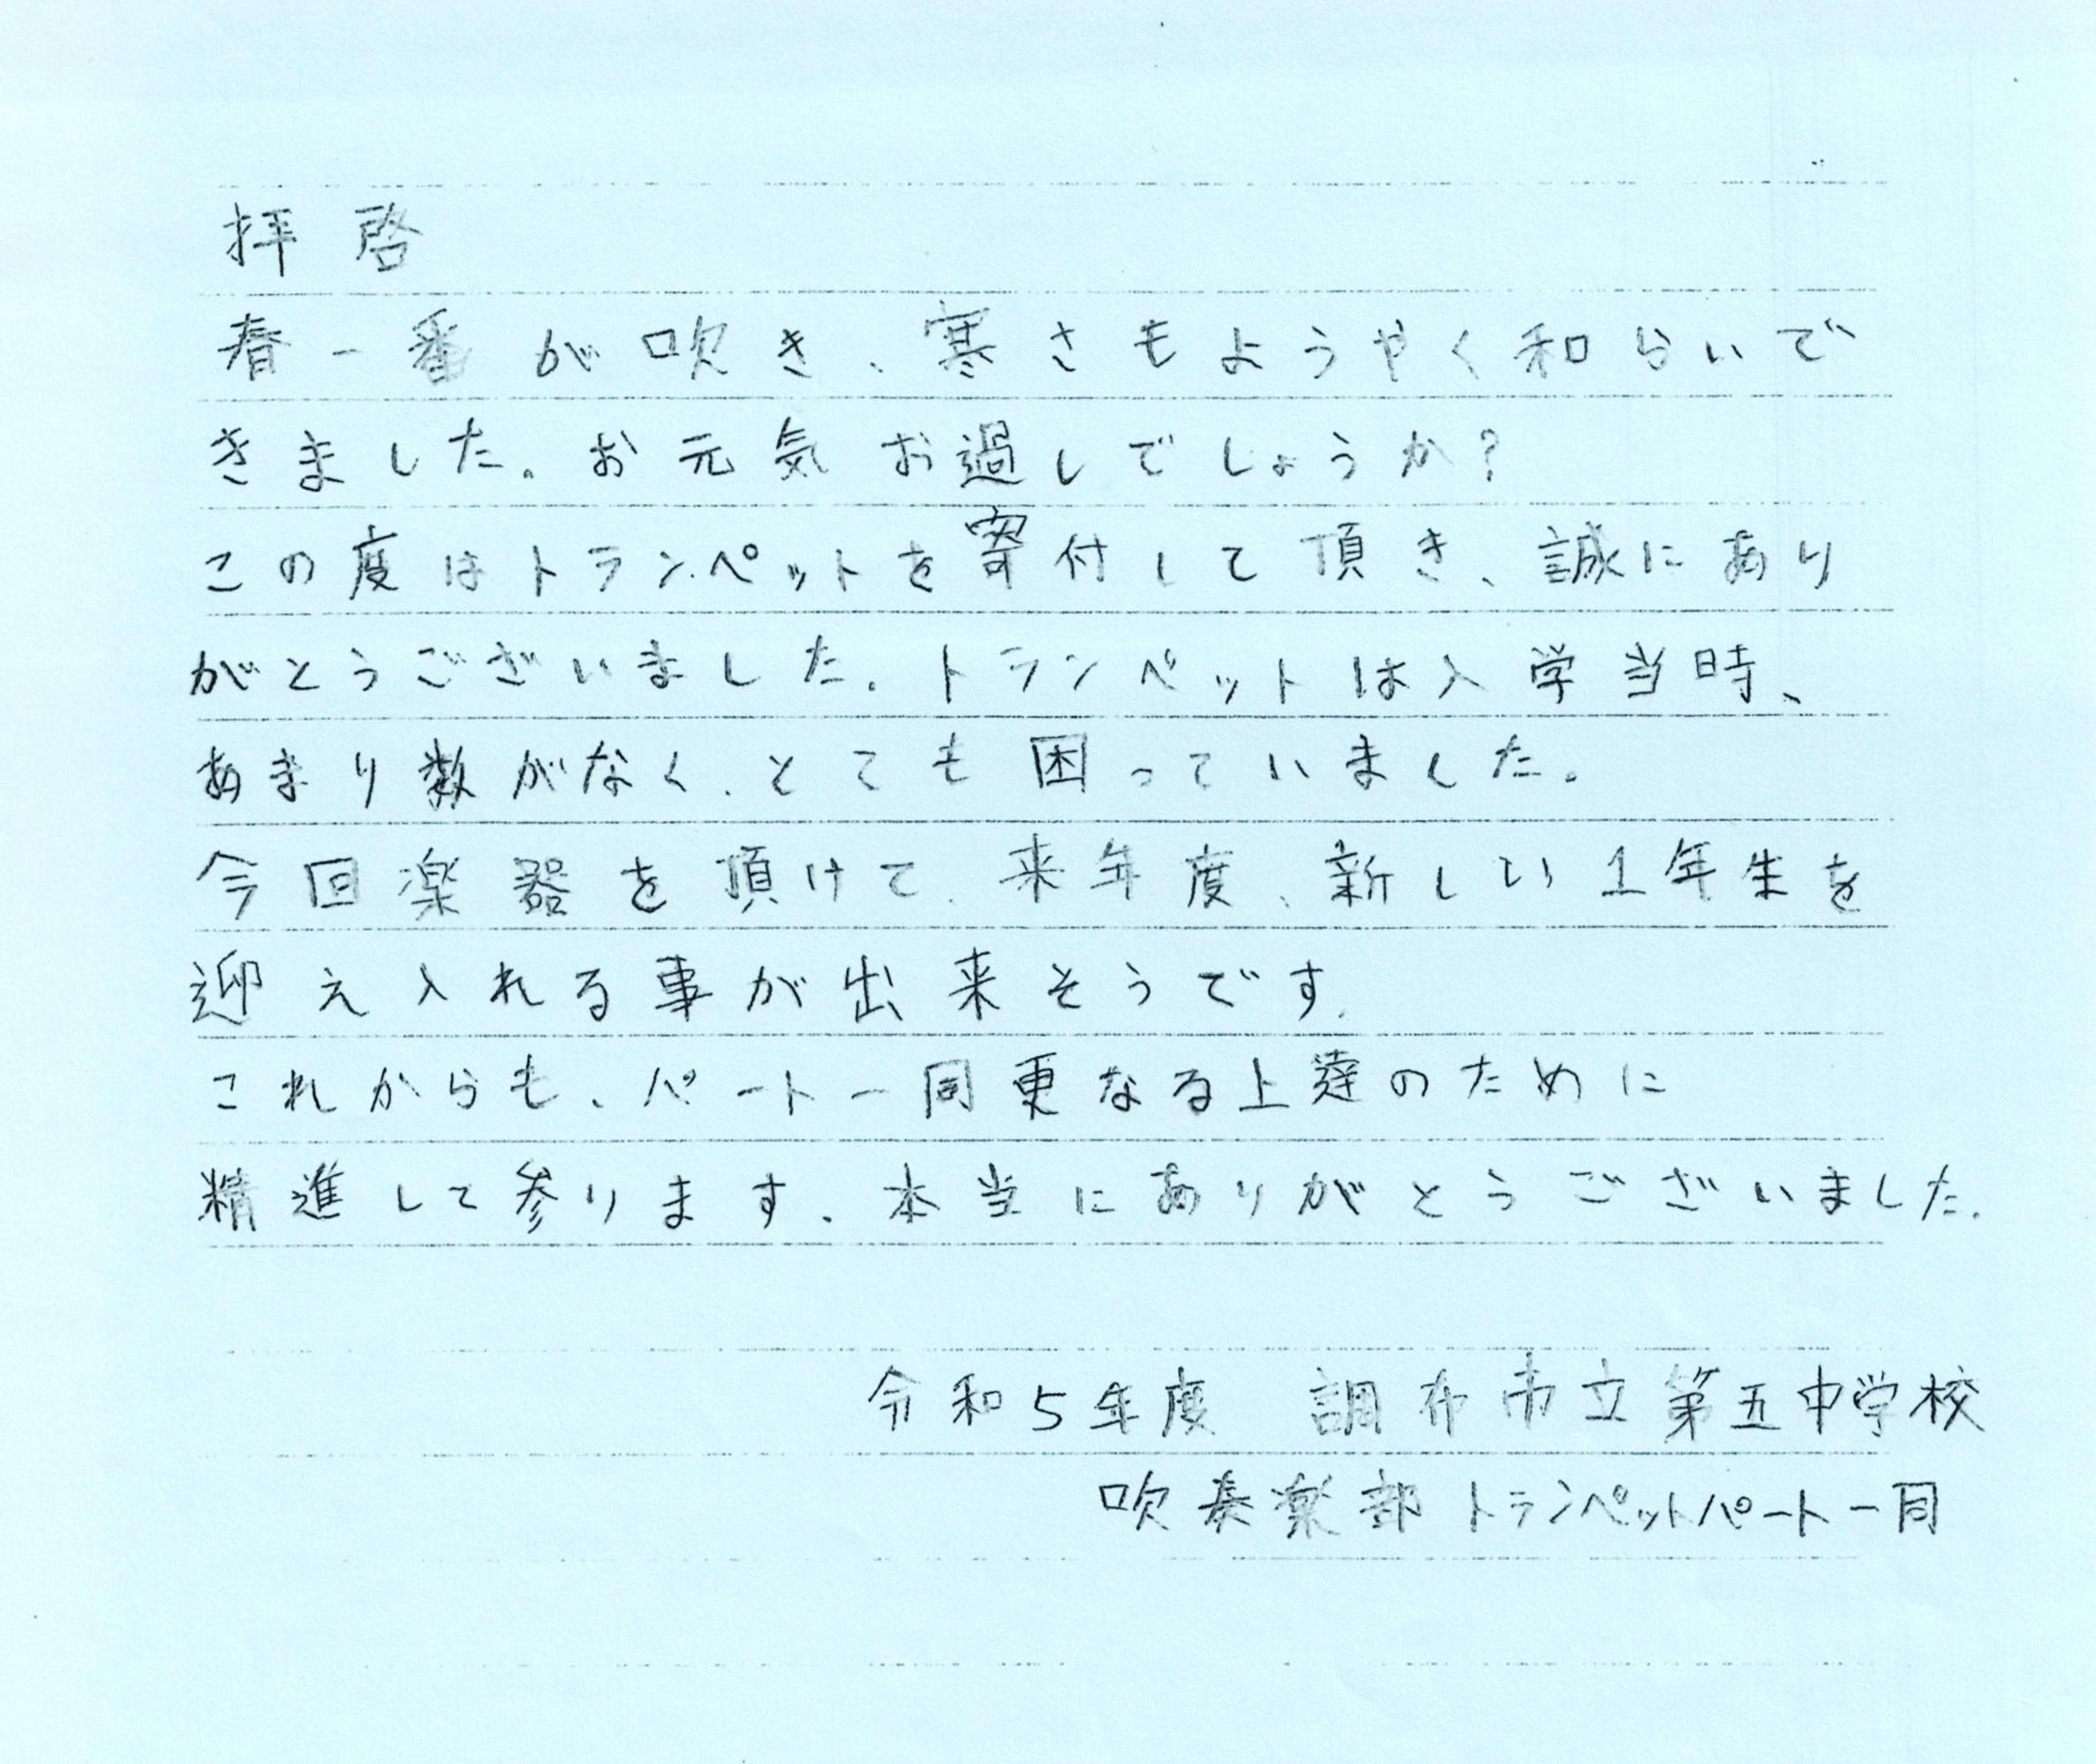 拝啓
春一番が吹き、寒さもようやく和らいで
きました。お元気お過しでしょうか?
この度はトランペットを寄付して頂き、誠にあり
がとうございました。トランペットは入学当時、
あまり数がなく、とても困っていました。
今回楽器を頂けて、来年度、新しい1年生を
迎え入れる事が出来そうです。
これからも、パート一同更なる上達のために
精進して参ります。本当にありがとうございました。
令和5年度 調布市立第五中学校
吹奏楽部トランペットパート一同